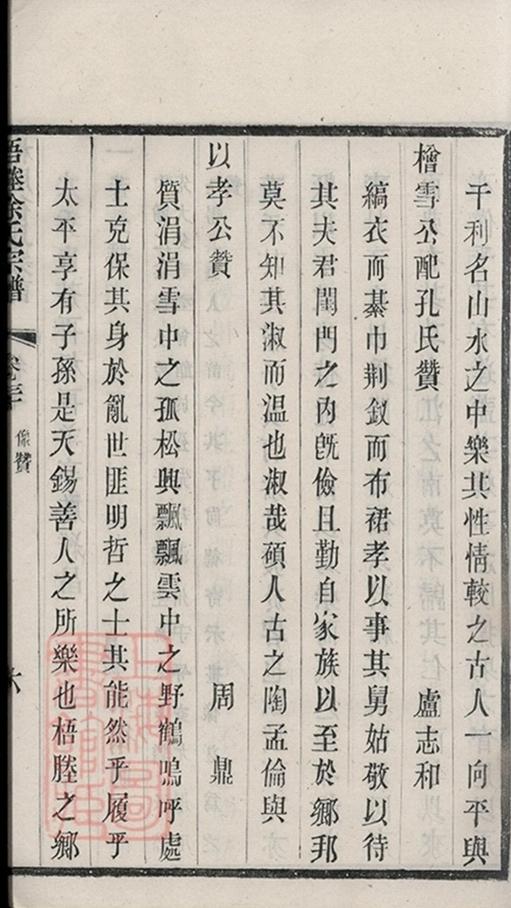 干利名山水之中樂其性情較之古人一向平與
檜雪公配孔氏贊 盧志和
縞衣而綦巾荆釵而布裙孝以事其舅姑敬以待
其夫君閨門之內旣儉且勤自家族以至於鄉邦
莫不知其淑而温也淑哉碩人古之陶孟倫與
以孝公贊 周鼎
質涓涓雪中之孤松興飄飄雲中之野鶴嗚呼處
士克保其身於亂世匪明哲之士其能然乎履乎
太平享有子孫是天錫善人之所樂也梧塍之鄉
梧塍徐氏宗譜
像贊
六